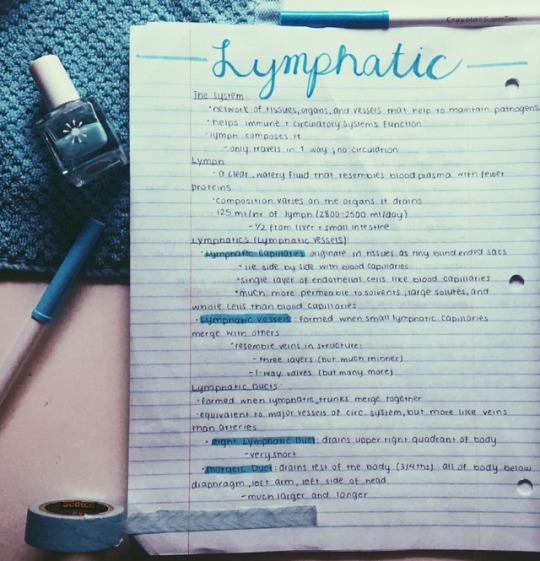 Crayola SuperTips
Lymphatic
The System
·network of tissues, organs, and vessels that help to maintain pathogens
·helps immune + circulatory systems function
·lymph composes it
-only travels in 1 way; no circulation
Lymph
·a clear, watery fluid that resembles blood plasma with fewer
proteins
·Composition varies on the organs it drains
·125 ml/hr of lymph (2800-2500 ml/day)
-1/2 from liver + small intestine
Lymphatics (Lymphatic vessels)
·Lymphatic Capillaries originate in tissues as tiny blind ended sacs
-lie side by side with blood capillaries
·single layer of endothelial cells like blood capillaries
·much more permeable to solvents, large solutes, and
whole cells than blood capillaries
·Lymphatic Vessels: formed when small lymphatic capillaries
merge with others
·resemble veins in structure:
-three layers (but much thinner)
-1-way valves (but many more)
Lymphatic Ducts
·formed when lymphatic trunks merge together
·equivalent to major vessels of circ. system, but more like veins
than arteries
·Right Lymphatic Duct: drains upper right quadrant of body
-very short
·Thoracic Duct: drains rest of the body (3/4ths): all of body below
diaphragm, left arm, left side of head
-much larger and longer
Scotch